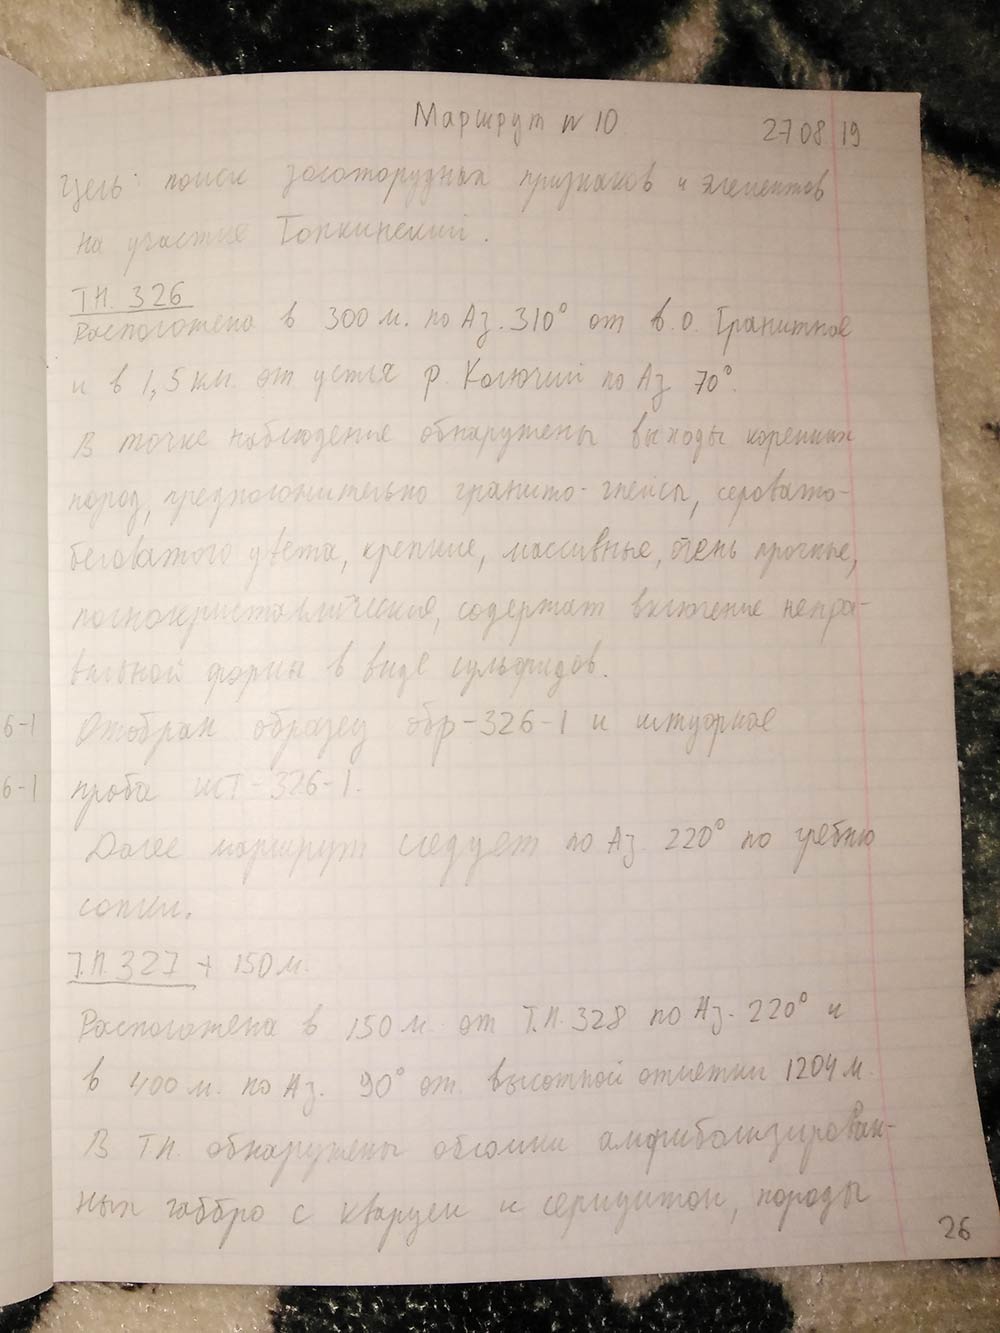 Маршрут N 10
27 08 19
Цель: поиск золоторудных признаков и элементов
на участке Топкинский.
Т.Н. 326
Расположена в 300 м. по Аз. 310° от в.о. Гранитное
и в 1,5 км. от устья р. Колючий по Аз 70°.
В точке наблюдение обнаружены выходы коренных
пород, предположительно гранито-гнейсы, серовато-
беловатого цвета, крепкие, массивные, очень прочные,
полнокристаллические, содержат включение непра-
вильной формы в виде сульфидов.
6-1 Отобран образец обр-326-1 и штуфное
6-1 проба шт-326-1.
Далее маршрут следует по Аз 220° по гребню
сопки.
Т.Н. 327 + 150 м.
Расположена в 150 м от Т.Н. 328 по Аз. 220° и
в 400 м. по Аз. 90° от высотной отметки 1204 м.
В Т.Н. обнаружены обломки амфиболизирован-
ных габбро с кварцем и серицитом, породы
26